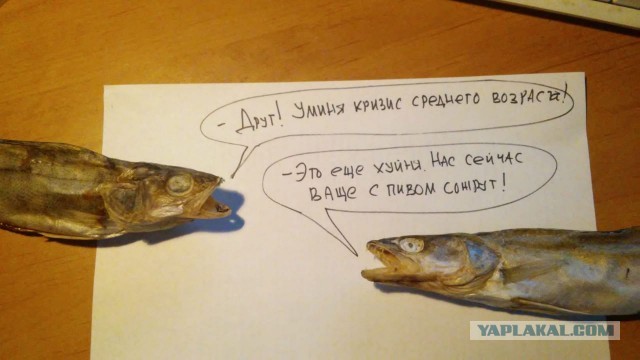 - Друг! У миня кризис среднего возраста!
- Это еще хуйня. Нас сейчас
ваще с пивом сожрут!
YAPLAKAL.COM